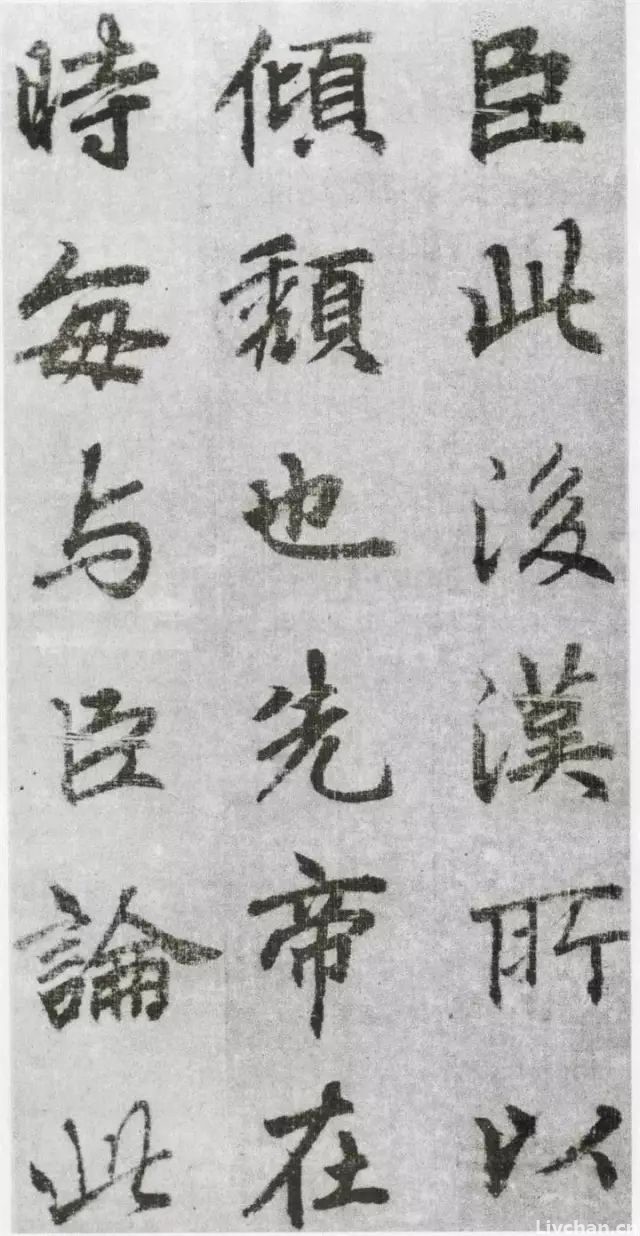 臣此後漢所以
傾頹也先帝在
時每与臣論此
Livchan.cn